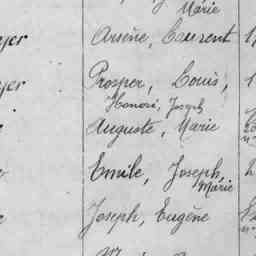 Marie
Arsène, Laurent
Prosper, Louis,
Honoré, Joseph
Auguste, Marie
Emile, Joseph,
Marie
Joseph, Eugène